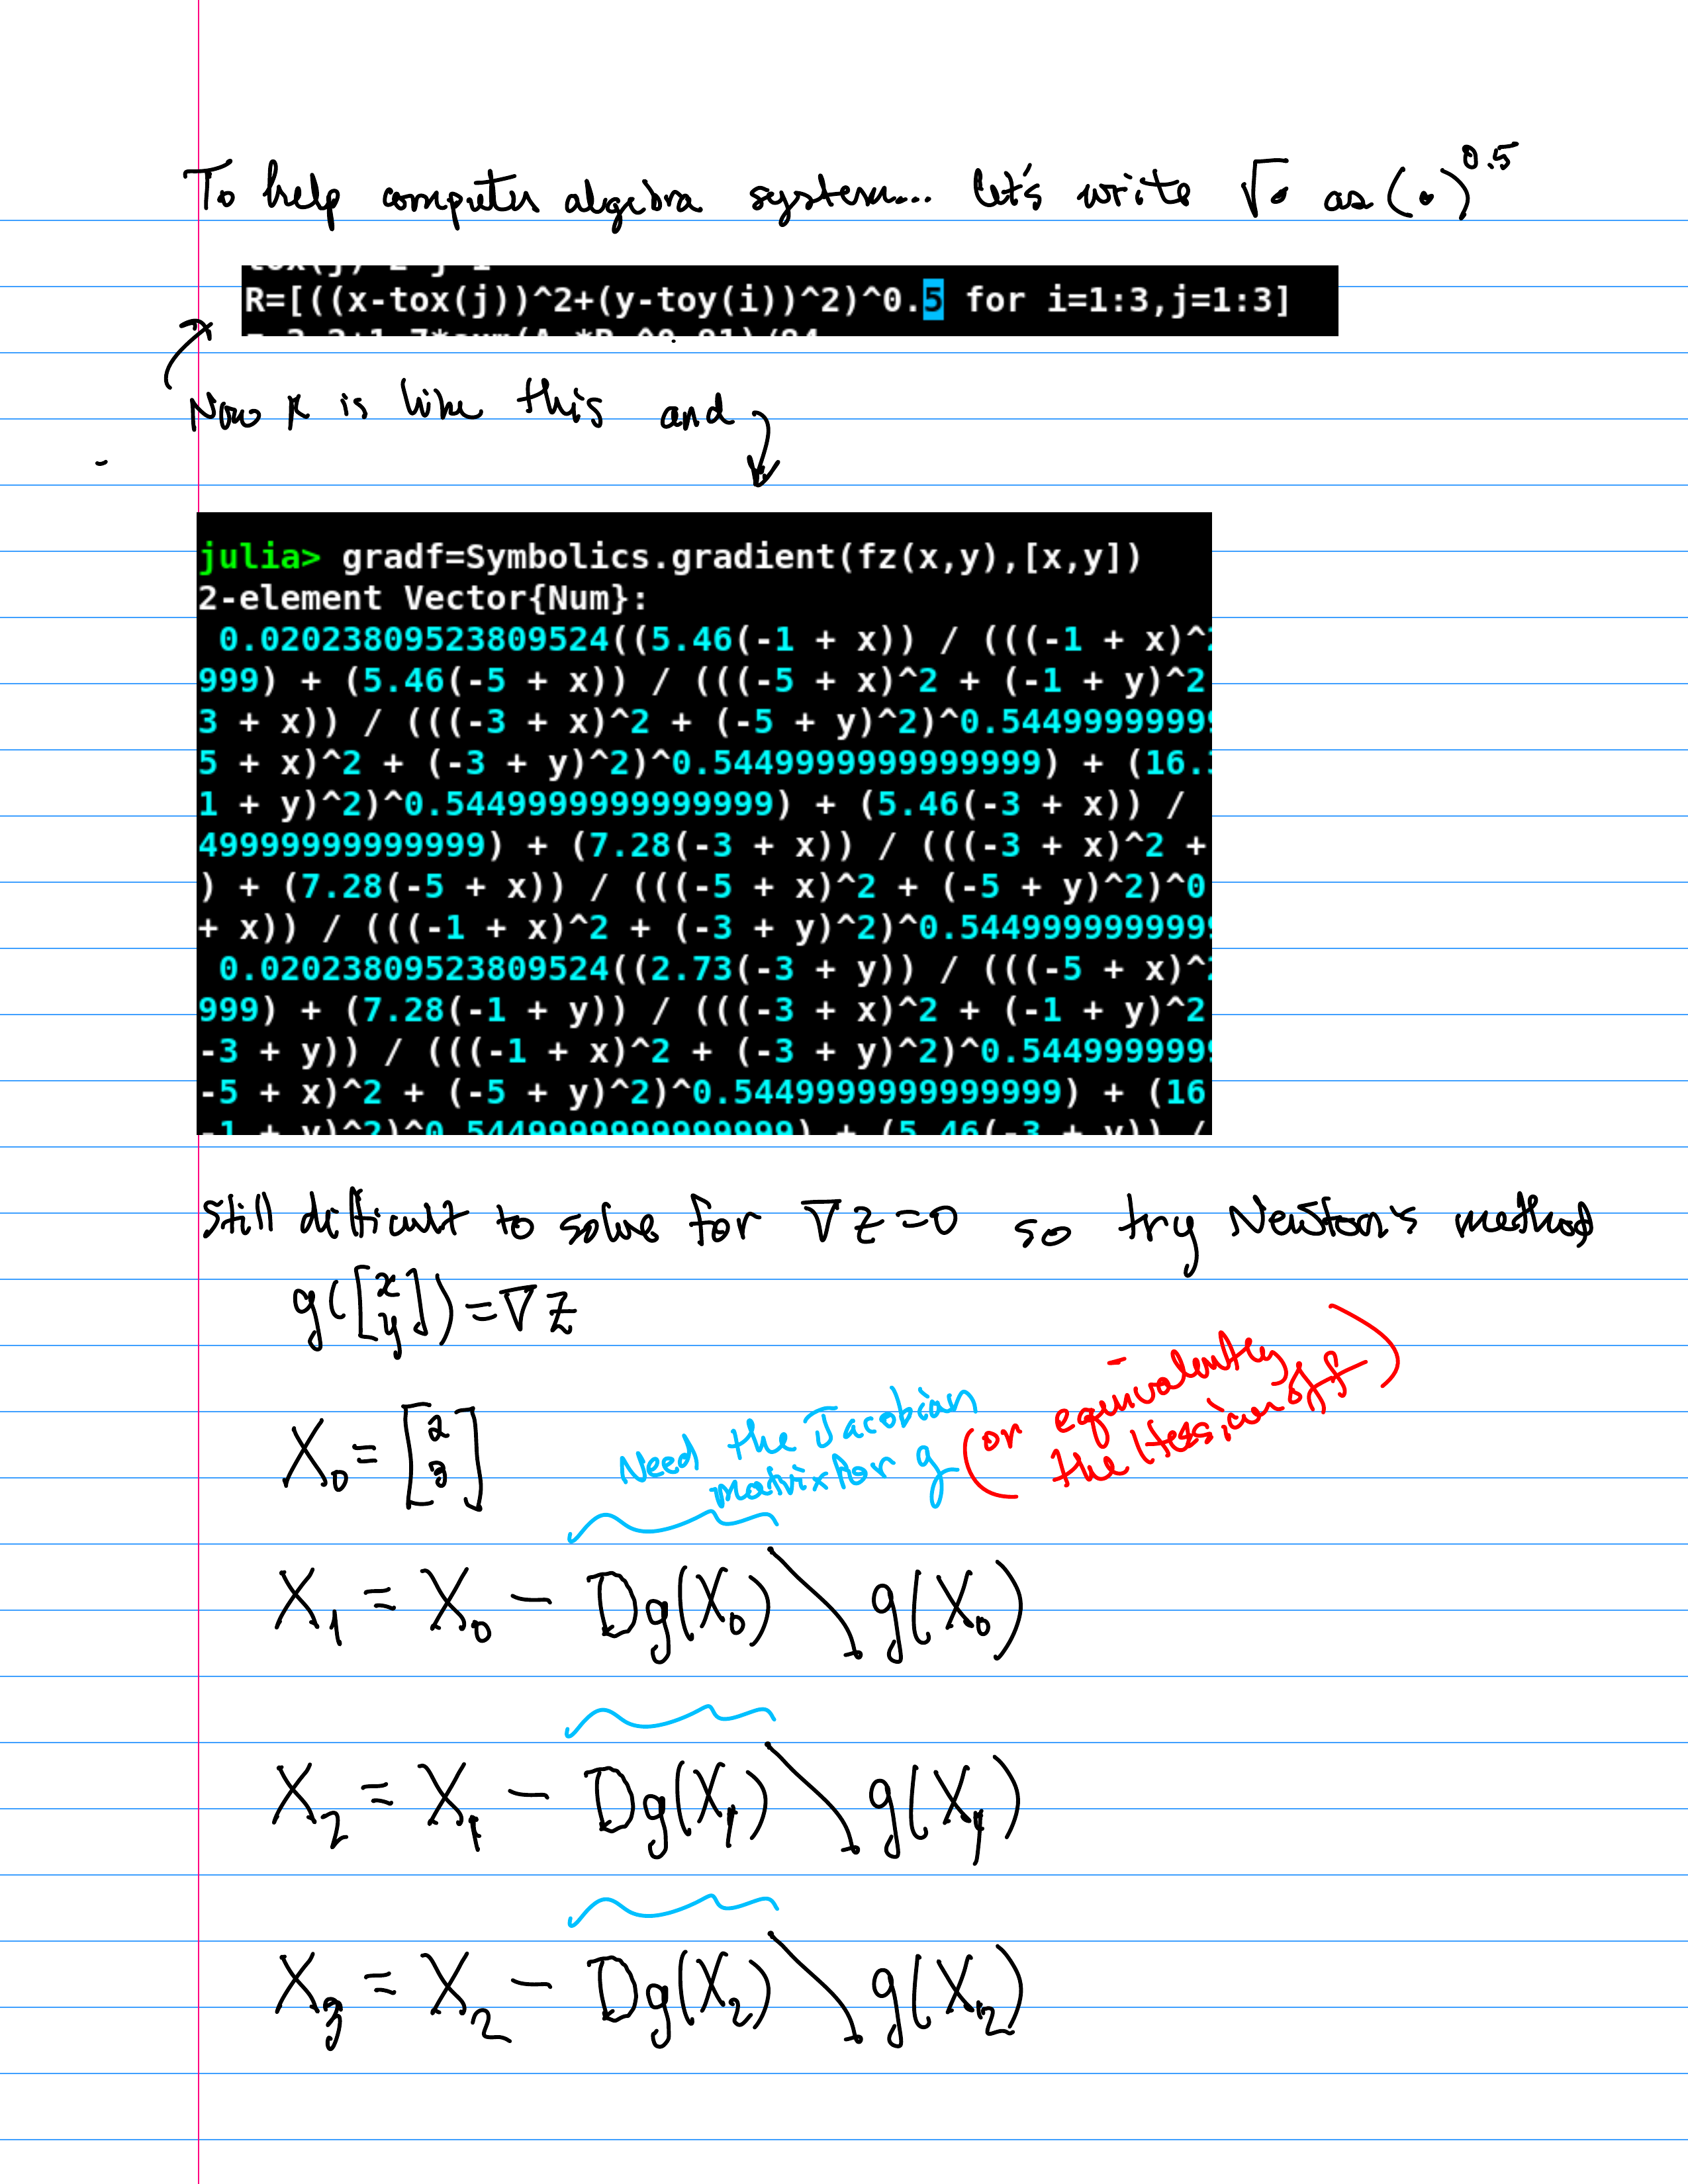 To help computer algebra system... let's write √• as (•)^0.5
R=[((x-tox(j))^2+(y-toy(i))^2)^0.5 for i=1:3,j=1:3]
Now R is like this and
julia> gradf=Symbolics.gradient(fz(x,y),[x,y])
2-element Vector{Num}:
0.02023809523809524((5.46(-1 + x)) / (((-1 + x)^2
999) + (5.46(-5 + x)) / (((-5 + x)^2 + (-1 + y)^2
3 + x)) / (((-3 + x)^2 + (-5 + y)^2)^0.544999999999
5 + x)^2 + (-3 + y)^2)^0.5449999999999999) + (16.
1 + y)^2)^0.5449999999999999) + (5.46(-3 + x)) /
49999999999999) + (7.28(-3 + x)) / (((-3 + x)^2 +
) + (7.28(-5 + x)) / (((-5 + x)^2 + (-5 + y)^2)^0
+ x)) / (((-1 + x)^2 + (-3 + y)^2)^0.54499999999999
0.02023809523809524((2.73(-3 + y)) / (((-5 + x)^2
999) + (7.28(-1 + y)) / (((-3 + x)^2 + (-1 + y)^2
-3 + y)) / (((-1 + x)^2 + (-3 + y)^2)^0.5449999999
-5 + x)^2 + (-5 + y)^2)^0.5449999999999999) + (16
-1 + y)^2)^0.5449999999999999) + (5.46(-3 + y)) /
Still difficult to solve for ∇z=0 so try Newton's method
g([x y])=∇z
X₀=[2 3]
Need the Jacobian
matrix for g
(or equivalently
the Hessian of f)
X₁ = X₀ − Dg(X₀)\g(X₀)
X₂ = X₁ − Dg(X₁)\g(X₁)
X₃ = X₂ − Dg(X₂)\g(X₂)